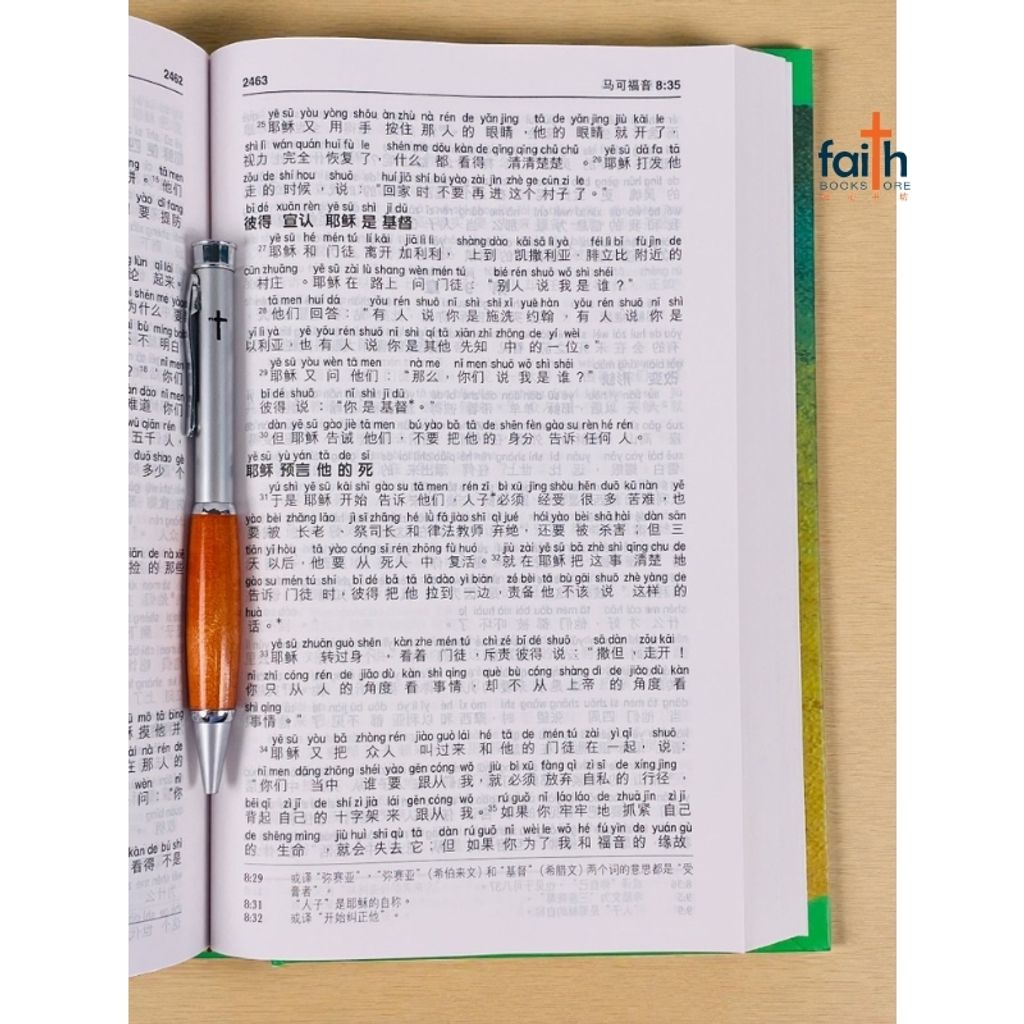 2462
tā men
并。¹⁵他们
yào dī fang
要 提防
lùn qǐ lái
论 起来。
shén me yào
为什么 要
不 明白
nǐ men
?¹⁸ 你们
nán dào nǐ men
难道 你们
wǔ qiān rén
五千 人，
duō shao gè
多少 个
de nà xiē
捡 的 那些
mō tā bìng
稣 摸 他 并
nà rén de
在 那 人 的
wèn
问：“你
kàn de bú shì
看得 不是
2463
马可福音 8:35
yē sū yòu yòng shǒu àn zhù nà rén de yǎn jing tā de yǎn jing jiù kāi le
²⁵耶稣 又 用 手 按住 那 人 的 眼睛，他的 眼睛 就 开了，
shì lì wán quán huī fù le shén me dōu kàn de qīng qīng chǔ chǔ yē sū dǎ fā tā
视力 完全 恢复 了，什么 都 看得 清清楚楚 。²⁶耶稣 打发 他
zǒu de shí hou shuō huí jiā shí bú yào zài jìn zhè ge cūn zi le
走 的 时候，说：“回家 时 不要 再 进 这个 村子 了。”
bǐ dé xuān rèn yē sū shì jī dū
彼得 宣认 耶稣 是 基督
yē sū hé mén tú lí kāi jiā lì lì shàng dào kǎi sā lì yà féi lì bǐ fù jìn de
²⁷耶稣 和 门徒 离开 加利利，上到 凯撒利亚·腓立比 附近 的
cūn zhuāng yē sū zài lù shang wèn mén tú bié rén shuō wǒ shì shéi
村庄 。耶稣 在 路上 问 门徒：“别人 说 我 是 谁？”
tā men huí dá yǒu rén shuō nǐ shì shī xǐ yuē hàn yǒu rén shuō nǐ shì
²⁸他们 回答：“有 人 说 你 是 施洗 约翰，有 人 说 你 是
yǐ lì yà yě yǒu rén shuō nǐ shì qí tā xiān zhī zhōng de yí wèi
以利亚，也 有 人 说 你 是 其他 先知 中 的 一位。”
yē sū yòu wèn tā men nà me nǐ men shuō wǒ shì shéi
²⁹耶稣 又 问 他们：“那么，你们 说 我 是 谁？”
bǐ dé shuō nǐ shì jī dū
彼得 说：“你 是 基督*。”
dàn yē sū gào jiè tā men bú yào bǎ tā de shēn fèn gào su rèn hé rén
³⁰但 耶稣 告诫 他们，不要 把 他的 身分 告诉 任何 人。
yē sū yù yán tā de sǐ
耶稣 预言 他 的 死
yú shì yē sū kāi shǐ gào su tā men rén zǐ bì xū jīng shòu hěn duō kǔ nàn yě
³¹于是 耶稣 开始 告诉 他们，人子*必须 经受 很 多 苦难，也
yào bèi zhǎng lǎo jì sī zhǎng hé lǜ fǎ jiào shī qì jué hái yào bèi shā hài dàn sān
要 被 长老 、祭司长 和 律法教师 弃绝，还要 被 杀害；但 三
tiān yǐ hòu tā yào cóng sǐ rén zhōng fù huó jiù zài yē sū bǎ zhè shì qīng chu de
天 以后，他 要 从 死人 中 复活。³²就在 耶稣 把 这 事 清楚 地
gào su mén tú shí bǐ dé bǎ tā lā dào yì biān zé bèi tā bù gāi shuō zhè yàng de
告诉 门徒 时，彼得 把 他 拉到 一边，责备 他 不该 说 这样 的
huà
话。*
yē sū zhuǎn guò shēn kàn zhe mén tú chì zé bǐ dé shuō sā dàn zǒu kāi
³³耶稣 转过身 ，看着 门徒，斥责 彼得 说：“撒但，走开！
nǐ zhǐ cóng rén de jiǎo dù kàn shì qing què bù cóng shàng dì de jiǎo dù kàn
你 只 从 人 的 角度 看 事情，却 不 从 上帝 的 角度 看
shì qing
事情。”
yē sū yòu bǎ zhòng rén jiào guò lái hé tā de mén tú zài yì qǐ shuō
³⁴耶稣 又 把 众人 叫过来 和 他的 门徒 在 一起，说：
nǐ men dāng zhōng shéi yào gēn cóng wǒ jiù bì xū fàng qì zì sī de xíng jìng
“你们 当中 谁 要 跟从 我，就 必须 放弃 自私 的 行径，
bēi qǐ zì jǐ de shí zì jià lái gēn cóng wǒ rú guǒ nǐ láo láo de zhuā jǐn zì jǐ
背起 自己 的 十字架 来 跟从 我。³⁵如果 你 牢牢 地 抓紧 自己
de shēng mìng jiù huì shī qù tā dàn rú guǒ nǐ wèi le wǒ hé fú yīn de yuán gù
的 生命 ，就会 失去 它；但 如果 你 为了 我 和 福音 的 缘故
8:29 或译“弥赛亚”，“弥赛亚”（希伯来文）和“基督”（希腊文）两个词的意思都是“受
膏者”。
8:31 “人子”是耶稣的自称。
8:32 或译“开始纠正他”。
faith
BOOKSTORE